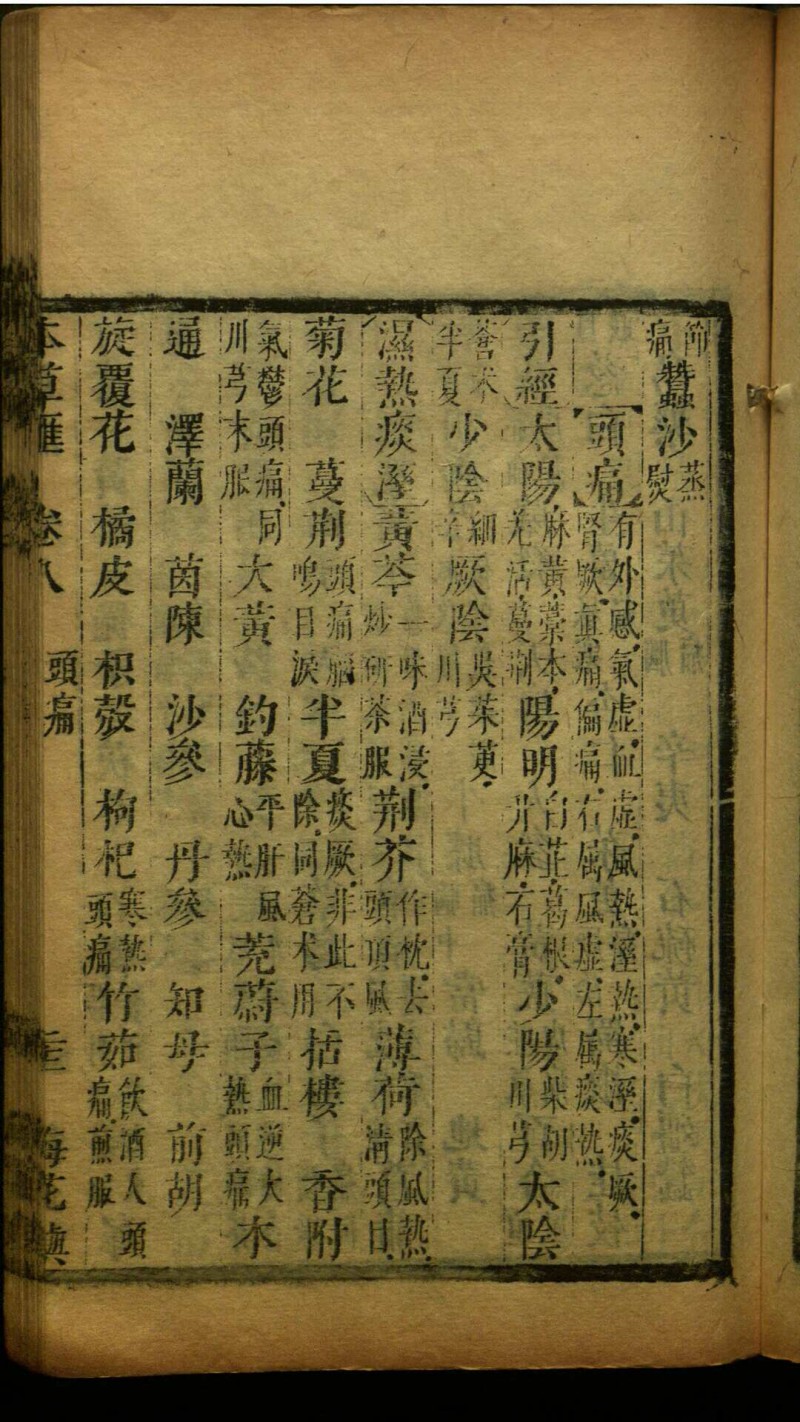 痛蠶沙蒸熨
頭痛有外感氣虛血虛風熱溼熱寒溼痰厥腎厥真痛偏痛右屬風虛左屬痰熱
引經太陽麻黃藁本羌活蔓荆陽明白芷葛根升麻石膏少陽柴胡川芎太陰
蒼术半夏少陰細辛厥陰吳茱萸川芎
濕熱痰溼黃芩一味酒浸炒研茶服荆芥作枕去頭項風薄荷除風熱清頭目
菊花 蔓荆頭痛腦鳴目淚半夏痰厥非此不除同蒼术用括樓 香附
氣鬱頭痛同川芎末服大黃 釣藤平肝風心熱茺蔚子血逆大熱頭痛木
通 澤蘭 茵陳 沙參 丹參 知母 前胡
旋覆花 橘皮 枳殼 枸杞寒熱頭痛竹茹飲酒人頭痛煎服
本草匯 卷八 頭痛 梅花嶼